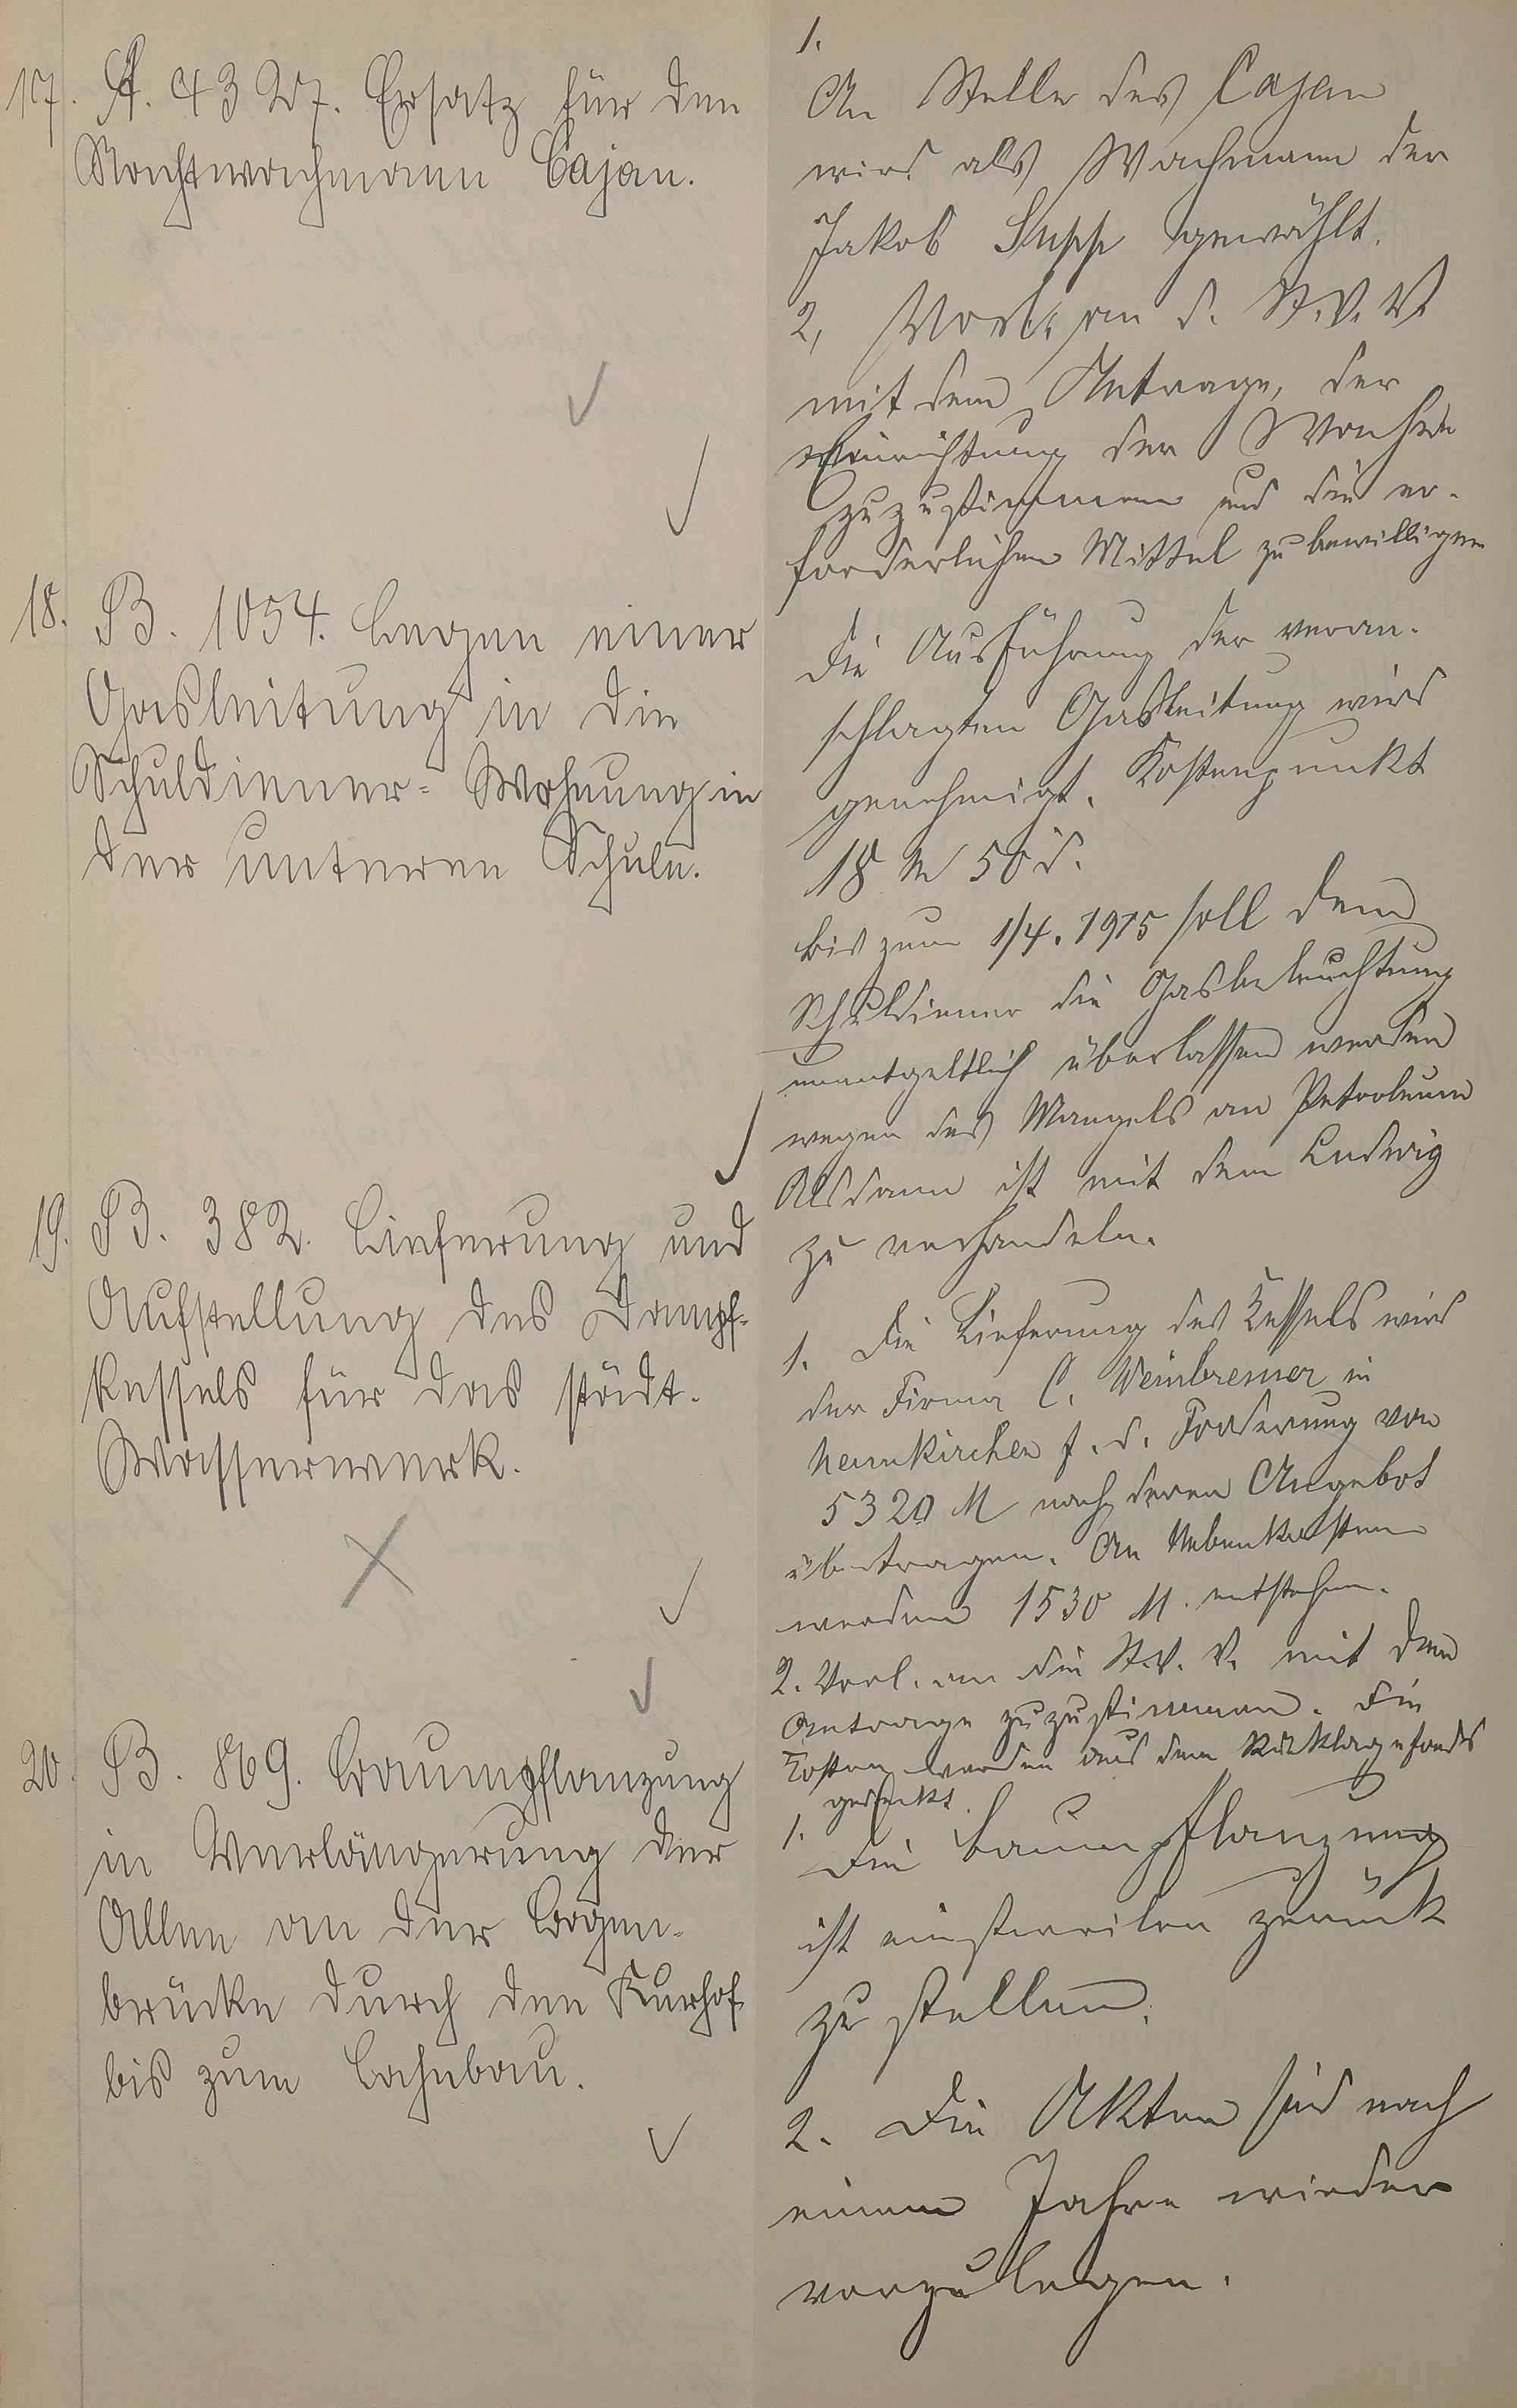 17. A. 4327. Ersatz für den
Nachtwachmann Cajan.
1.
An Stelle des Cajan
wird als Wachmann der
Jakob Supp gewählt.
2, Vorl. an d. St. V. V.
mit dem Antrage, der
Einrichtung der Wache
zuzustimmen und die er-
forderlichen Mittel zu bewilligen
18. B. 1054. Legen einer
Gasleitung in die
Schuldiener-Wohnung in
der unteren Schule.
Die Ausführung der veran-
schlagten Gasleitung wird
genehmigt. Kostenpunkt
18 M 50 d.
Bis zum 1/4. 1915 soll dem
Schuldiener die Gasbeleuchtung
unentgeltlich überlassen werden
wegen des Mangels an Petroleum
Alsdann ist mit dem Ludwig
zu verhandeln.
19. B. 382. Lieferung und
Aufstellung des Dampf-
kessels für das städt.
Wasserwerk.
1. Die Lieferung des Kessels wird
der Firma C. Weinbrenner in
Neunkirchen f. d. Forderung von
5320 M nach deren Angebot
übertragen. An Nebenkosten
werden 1530 M. entstehen.
2. Vorl. an die St. V. V. mit dem
Antrage zuzustimmen. Die
Kosten werden aus dem Rücklagefonds
gedeckt.
20. B. 869. Baumpflanzung
in Verlängerung der
Allee an der Bogen-
brücke durch den Kurhof
bis zum Bahnbau.
1.
Die Baumpflanzung
ist einstweilen zurück
zu stellen.
2. Die Akten sind nach
einem Jahre wieder
vorzulegen.